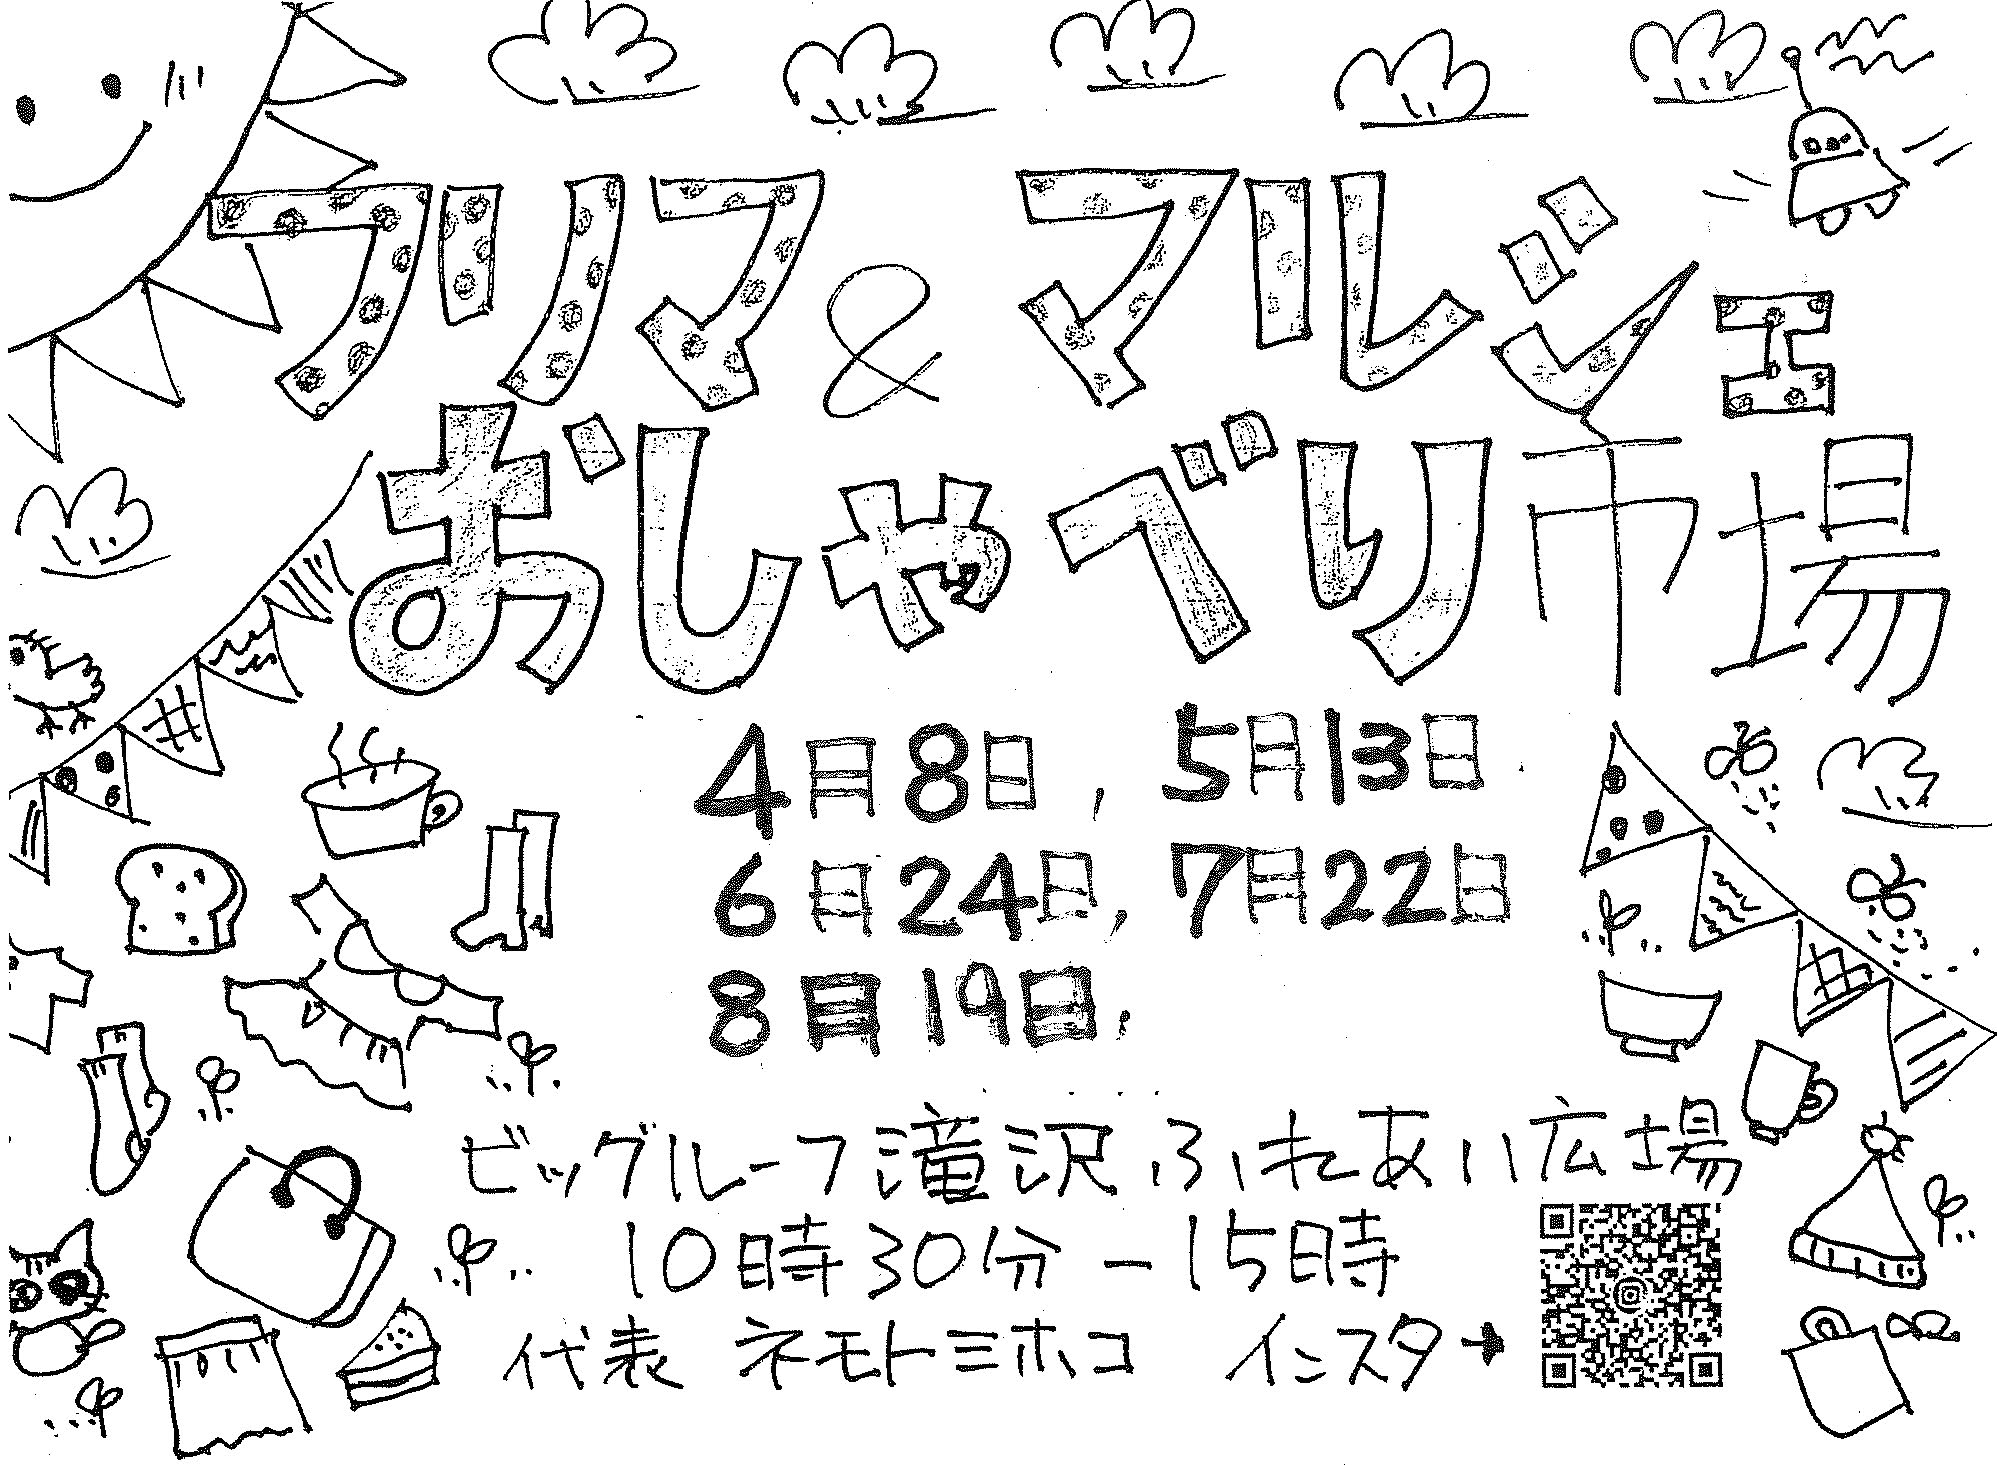 フリマ & マルシェ
おしゃべり市場
4月8日, 5月13日
6月24日, 7月22日
8月19日,
ビッグルーフ滝沢 ふれあい広場
10時30分-15時
代表 ネモトミホコ インスタ→